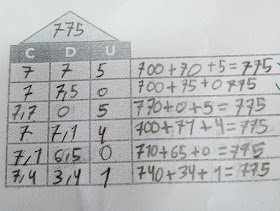 775
C D U
7 7 5 700+70+5=775
7 7,5 0 700+75+0 775
7,7 0 5 770+0+5=775
7 7,1 4 700+71+4=775
7,1 6,5 0 710+65+0=775
7,4 3,4 1 740+34+1=775